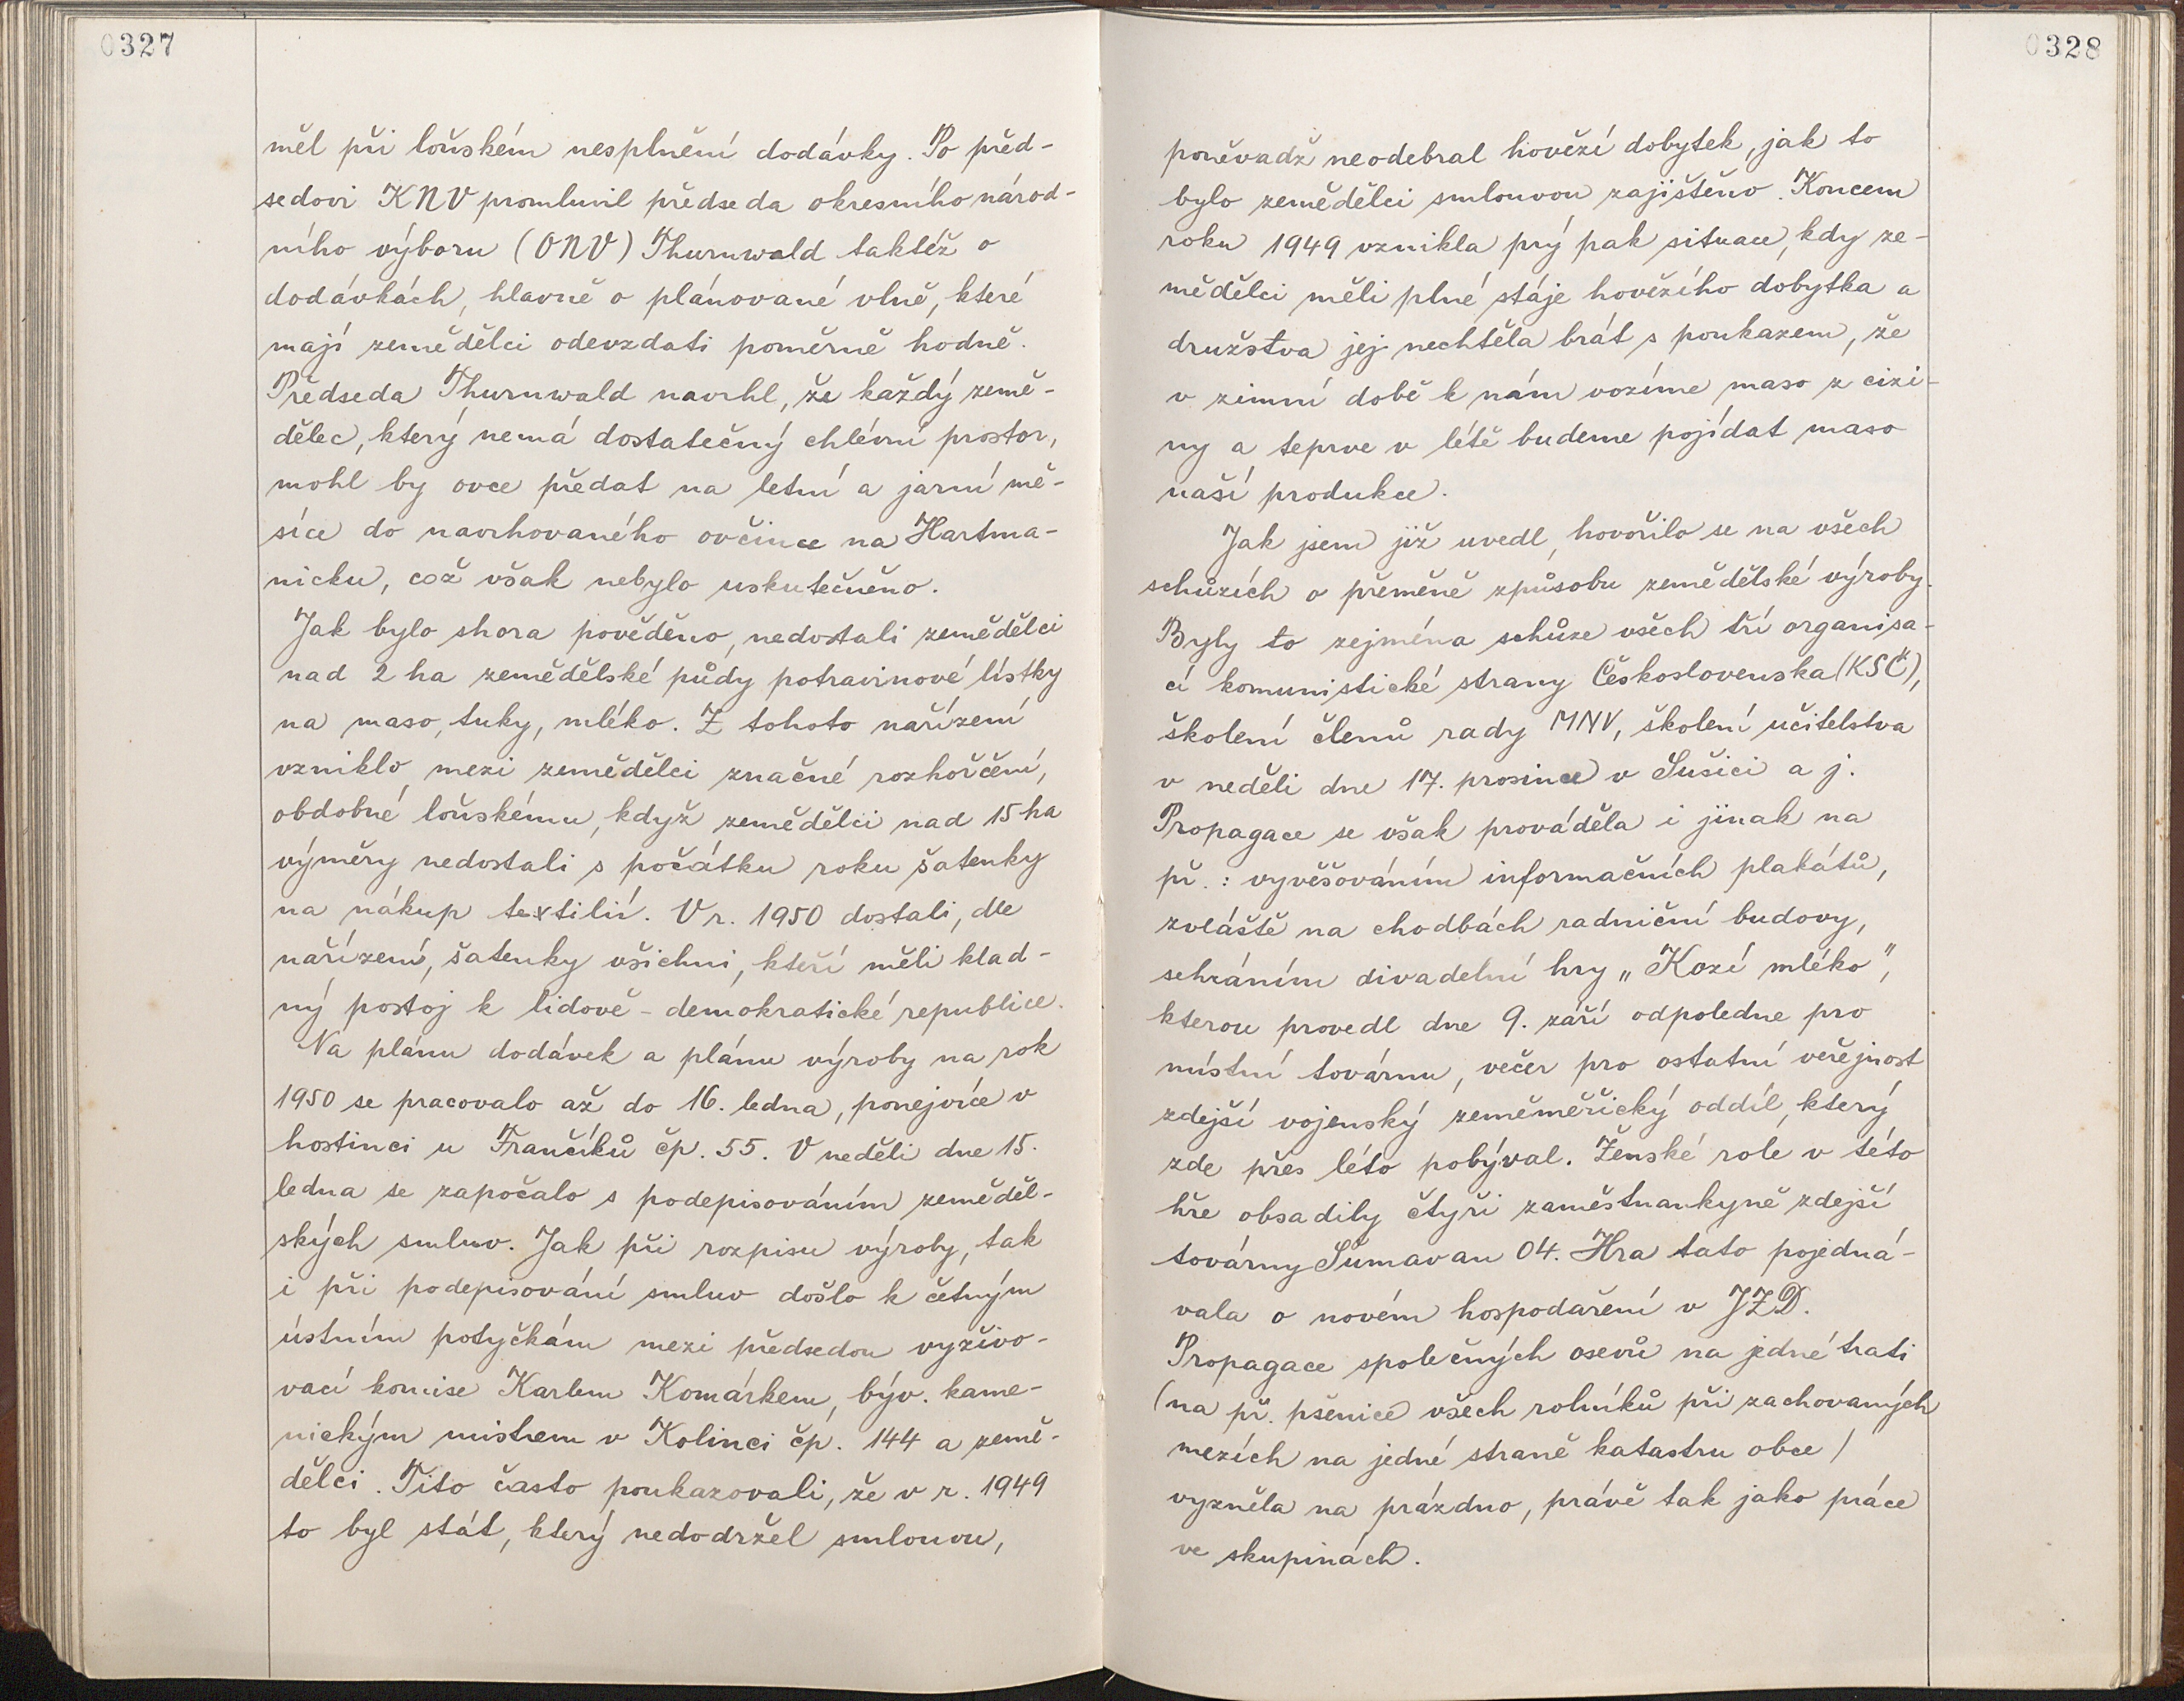 0327
měl při loňském nesplnění dodávky. Po před-
sedovi KNV promluvil předseda okresního národ-
ního výboru (ONV) Thurnwald taktéž o
dodávkách, hlavně o plánované vlně, které
mají zemědělci odevzdati poměrně hodně.
Předseda Thurnwald navrhl, že každý země-
dělec, který nemá dostatečný chlévní prostor,
mohl by ovce předat na letní a jarní mě-
síce do navrhovaného ovčince na Hartma-
nicku, což však nebylo uskutečněno.
Jak bylo shora pověděno, nedostali zemědělci
nad 2 ha zemědělské půdy potravinové lístky
na maso, tuky, mléko. Z tohoto nařízení
vzniklo mezi zemědělci značné rozhořčení,
obdobné loňskému, když zemědělci nad 15 ha
výměry nedostali s počátku roku šatenky
na nákup textilií. V r. 1950 dostali, dle
nařízení, šatenky všichni, kteří měli klad-
ný postoj k lidově-demokratické republice.
Na plánu dodávek a plánu výroby na rok
1950 se pracovalo až do 16. ledna, ponejvíce v
hostinci u Frančíků čp. 55. V neděli dne 15.
ledna se započalo s podepisováním zeměděl-
ských smluv. Jak při rozpisu výroby, tak
i při podepisování smluv došlo k četným
ústním potyčkám mezi předsedou vyživo-
vací komise Karlem Komárkem, býv. kame-
nickým mistrem v Kolinci čp. 144 a země-
dělci. Tito často poukazovali, že v r. 1949
to byl stát, který nedodržel smlouvu,
0328
poněvadž neodebral hovězí dobytek, jak to
bylo zemědělci smlouvou zajištěno. Koncem
roku 1949 vznikla prý pak situace, kdy ze-
mědělci měli plné stáje hovězího dobytka a
družstva jej nechtěla brát s poukazem, že
v zimní době k nám vozíme maso z cizi-
ny a teprve v létě budeme pojídat maso
naší produkce.
Jak jsem již uvedl, hovořilo se na všech
schůzích o přeměně způsobu zemědělské výroby.
Byly to zejména schůze všech tří organisa-
cí komunistické strany Československa (KSČ),
školení členů rady MNV, školení učitelstva
v neděli dne 17. prosince v Sušici a j.
Propagace se však prováděla i jinak na
př.: vyvěšováním informačních plakátů,
zvláště na chodbách radniční budovy,
sehráním divadelní hry „Kozí mléko",
kterou provedl dne 9. září odpoledne pro
místní továrnu, večer pro ostatní veřejnost
zdejší vojenský zeměměřický oddíl, který
zde přes léto pobýval. Ženské role v této
hře obsadily čtyři zaměstnankyně zdejší
továrny Šumavan 04. Hra tato pojedná-
vala o novém hospodaření v JZD.
Propagace společných osevů na jedné trati
(na př. pšenice všech rolníků při zachovaných
mezích na jedné straně katastru obce)
vyzněla na prázdno, právě tak jako práce
ve skupinách.